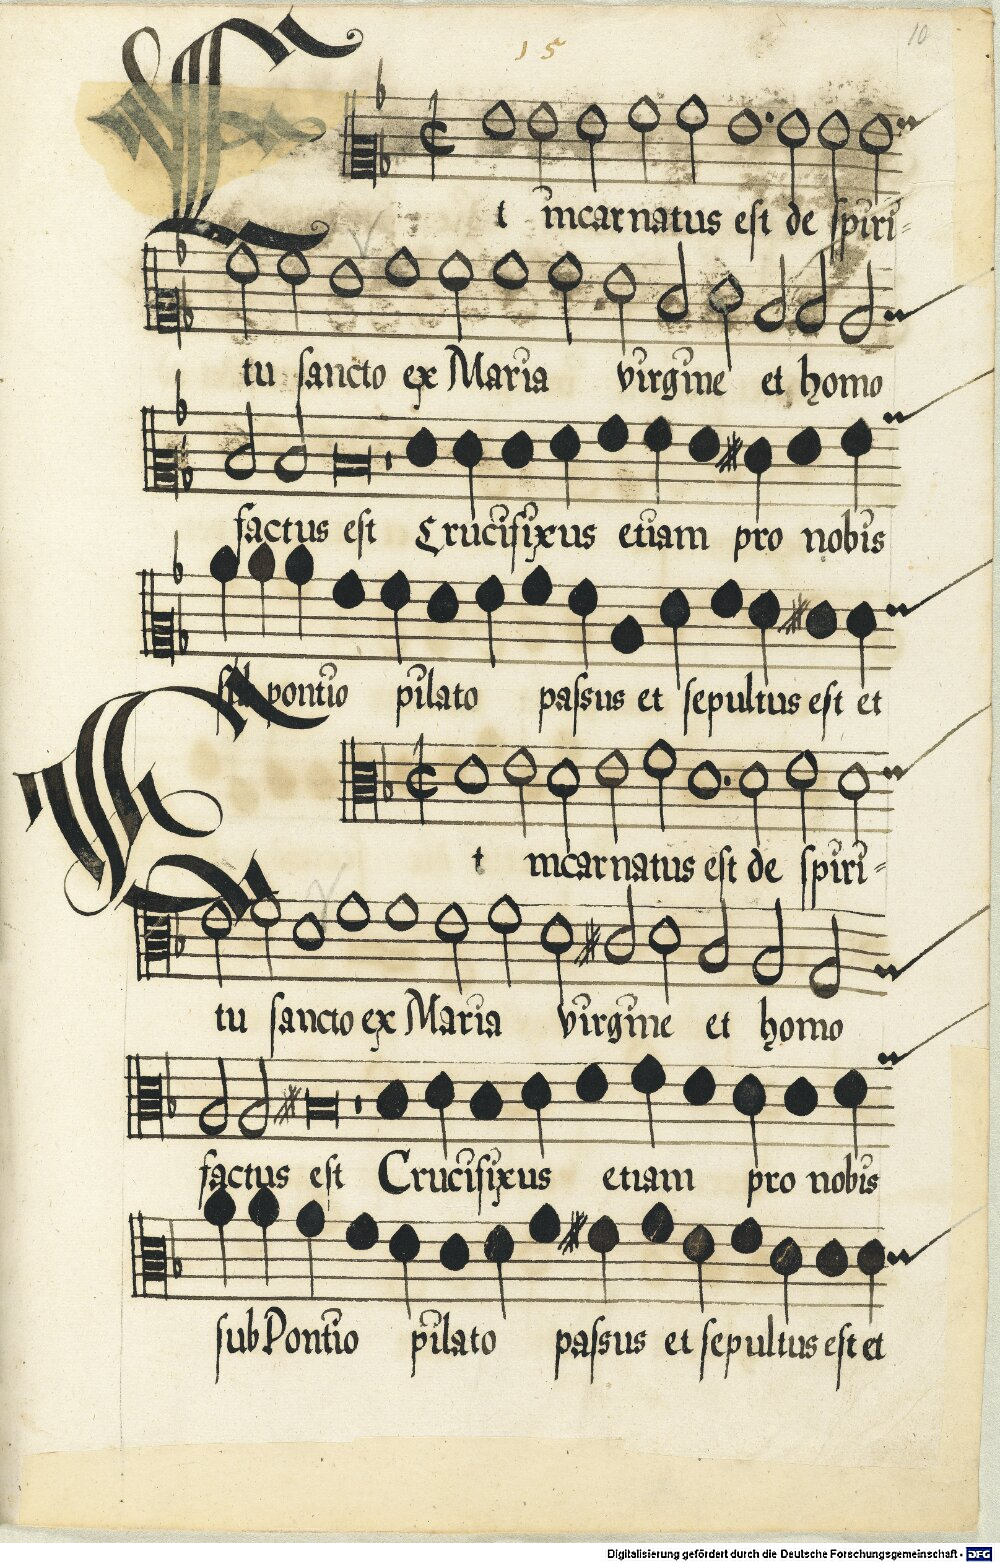 15
10
Et incarnatus est de spiri=
tu sancto ex Maria virgine et homo
factus est Crucifixus etiam pro nobis
sub pontio pilato passus et sepultus est et
Et incarnatus est de spiri=
tu sancto ex Maria virgine et homo
factus est Crucifixus etiam pro nobis
sub Pontio pilato passus et sepultus est et
Digitalisierung gefördert durch die Deutsche Forschungsgemeinschaft - DFG